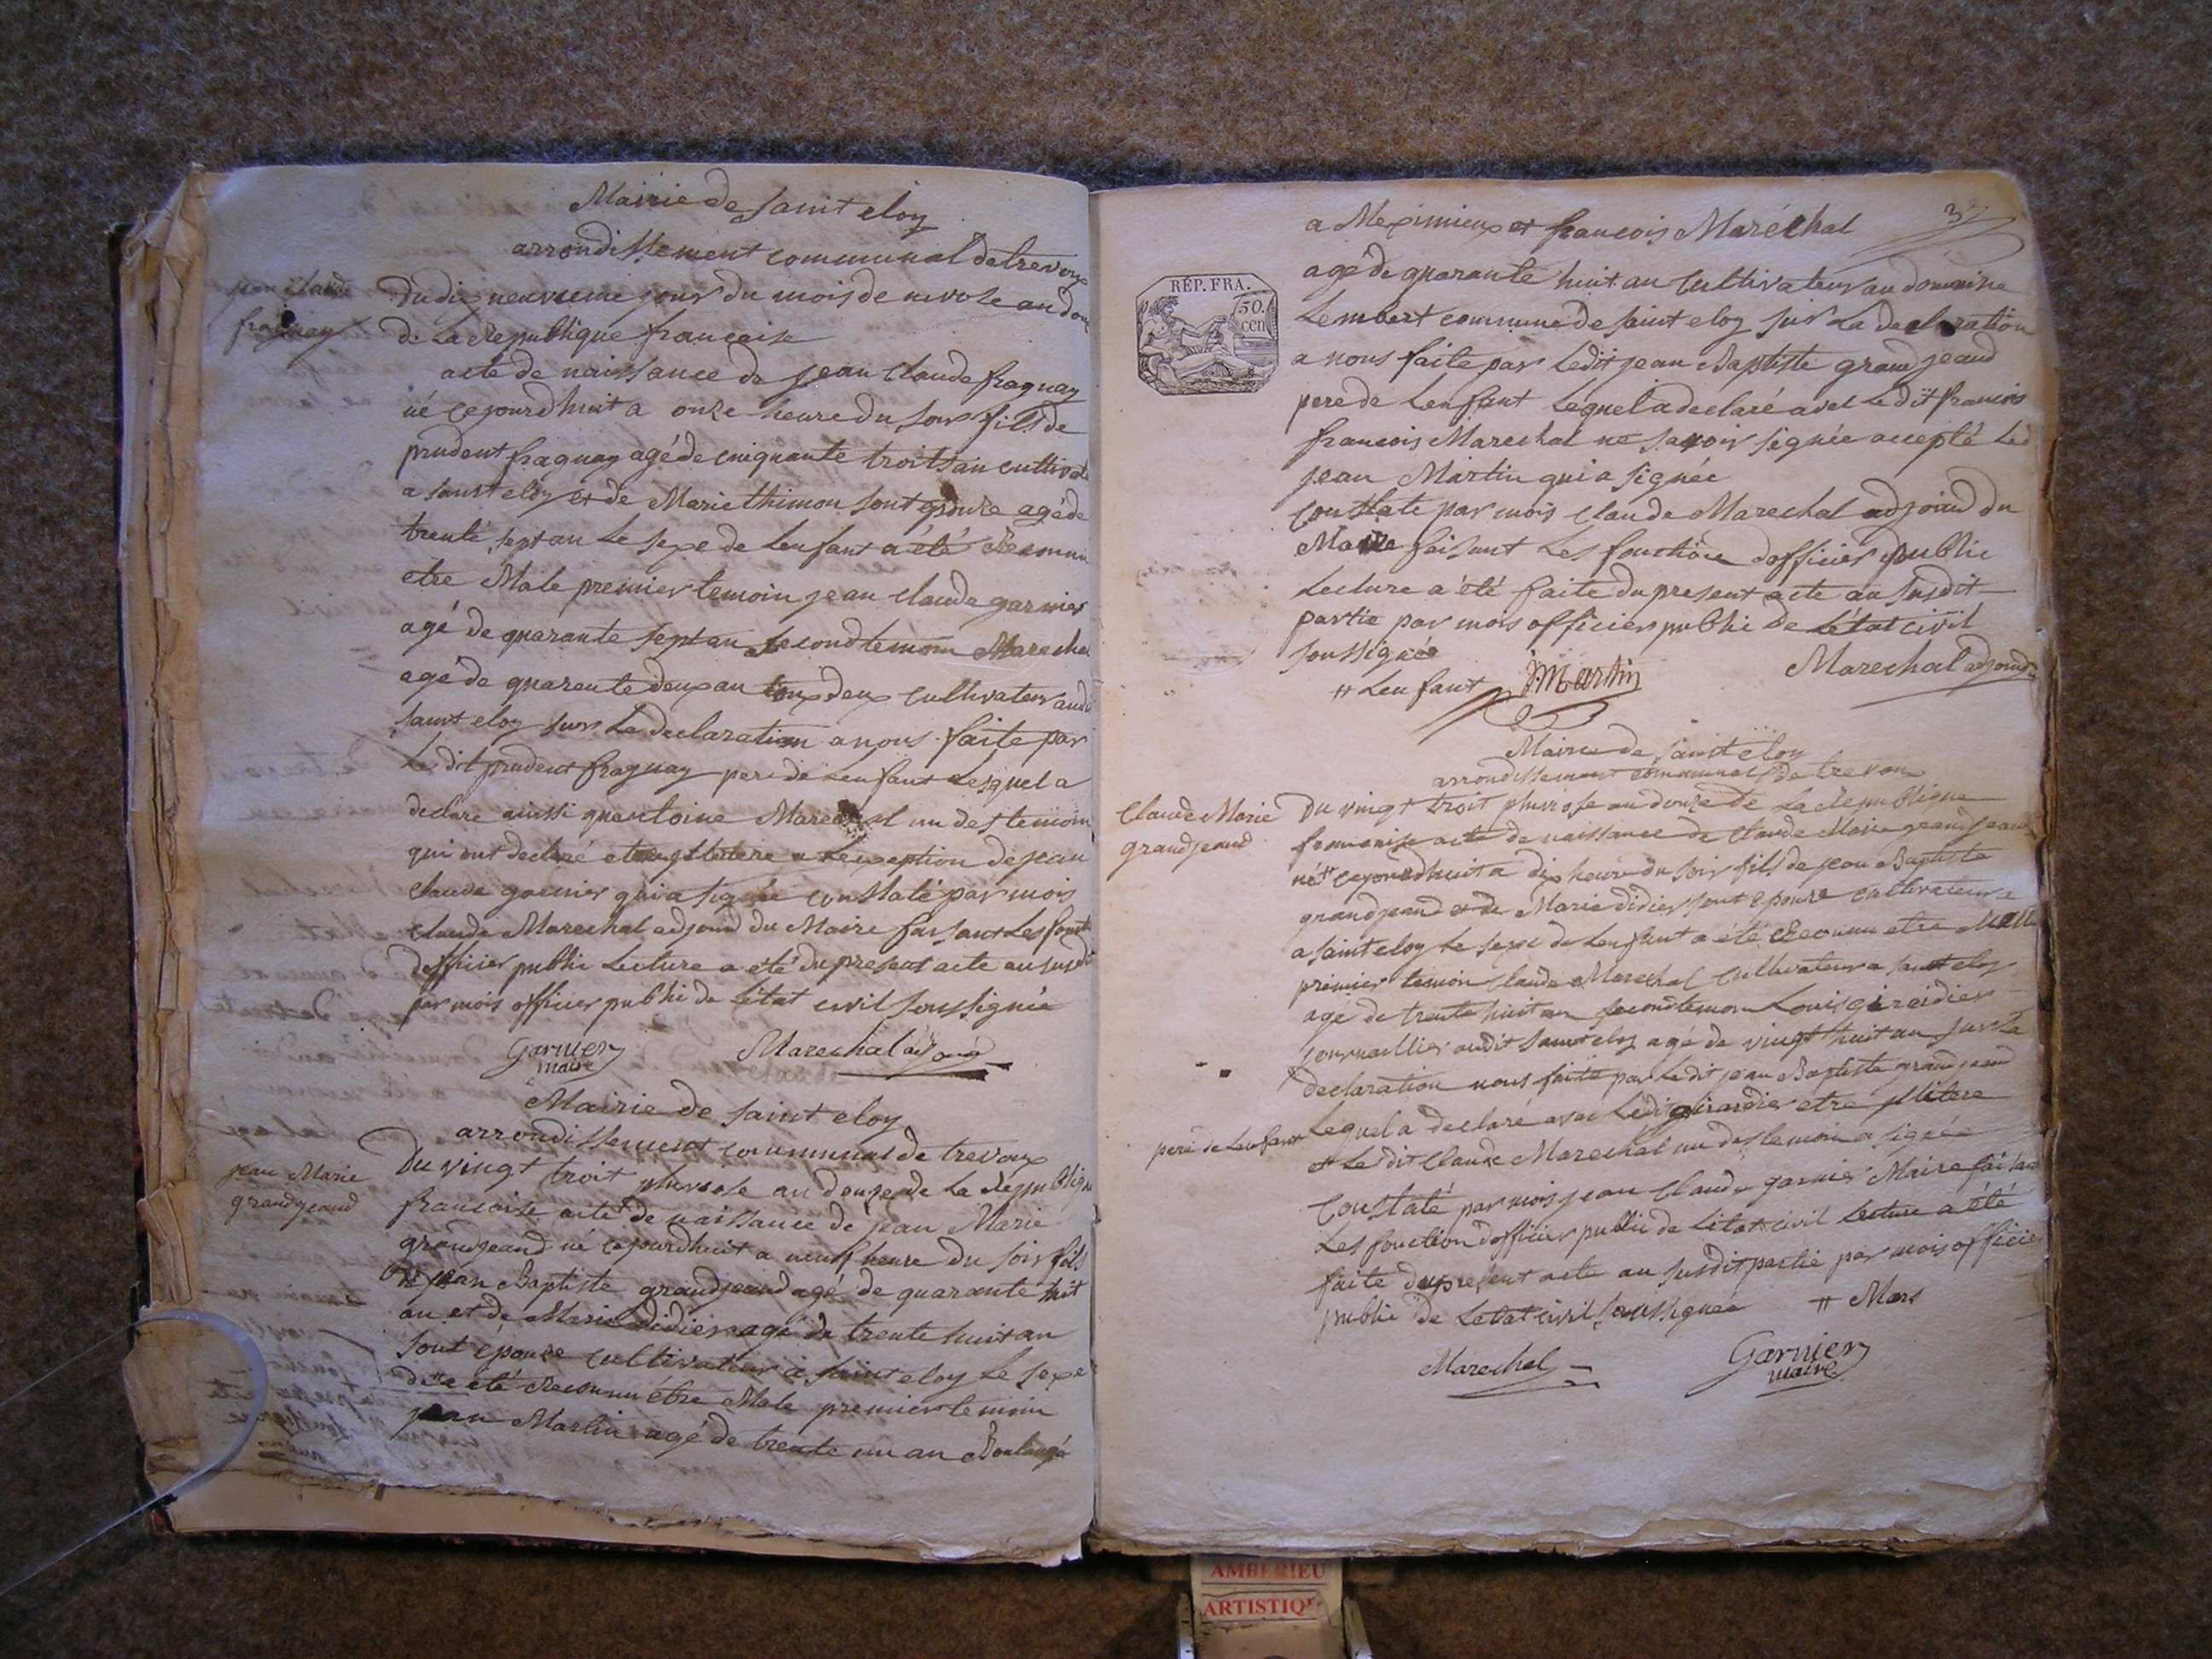 Mairie de saint eloy
arrondissement communal de trevoux
jean claude
fraguay
Du dix neuvieme jour du mois de nivose an douz
de La republique francaise
acte de naissance de jean Claude fraguay
né cejourdhuit a onze heure du soir fils de
prudent fraguay agé de cinquante troits an cultivate
a saint eloy et de Marie thimon sont epouze agé de
trente sept an Le sexe de Lenfant a été Reconnu
etre Male premier temoin jean claude garnier
agé de quarante sept an second temoin Marechal
agé de quarente deux an tous deux cultivateur audi
saint eloy sur La declaration a nous faite par
Le dit prudent fraguay pere de Lenfant Lesquel a
declare aussi quentoine Marechal un des temoin
qui ont declaré etre illitere a Lexception de jean
claude garnier qui a signée constaté par mois
claude Marechal adjoind du Maire faisant Les foncti
dofficier public Lecture a été du present acte au susdit
par mois officier publi de Létat civil soussignée
Garnier
maire
Marechal adjoind
Mairie de saint eloy
arrondissement communal de trevoux
jean Marie
grandjeand
Du vingt troit pluviose an douze de La Republique
francoise acte de naissance de jean Marie
grandjeand né cejourdhuit a neuf heure du soir fils
de jean Baptiste grandjeand agé de quarante huit
an et de Marie Didier agé de trente huit an
sont épouze cultivateur a saint eloy Le sexe
d" a été Reconnu étre Male premier temoin
jean Martin agé de trente un an Boulangé
3
a Meximieux et francois Maréchal
agé de quarante huit an Cultivateur au domaine
Lembert commune de saint eloy sur La declaration
a nous faite par Ledit jean Baptiste grandjeand
pere de Lenfant Lequel a declaré avec Le dit francois
francois Marechal ne savoir signée accepté Led
jean Martin qui a signée
constate par mois Claude Marechal adjoind du
Maire faisant Les fonction dofficier public
Lecture a été faite du present acte au susdit
partie par mois officier publi de Létat civil
soussignée
RÉP. FRA.
50.
CEN
" Lenfant
J. Martin
Marechal adjoind
Mairie de saint eloy
arrondissement communal de trevoux
Claude Marie
grandjeand
Du vingt troit pluviose an douze de La Republique
francaise acte de naissance de Claude Marie grandjeand
né" cejourdhuit a dix heure du soir fils de jean Baptiste
grandjeand et de Marie didier sont epouze cultivateur
a saint eloy Le sexe de Lenfant a été Reconnu etre Malle
premier temoin Claude Marechal Cultivateur a saint eloy
agé de trente huit an second temoin Louis giraidier
journaillier audit saint eloy agé de vingt huit an sur La
declaration nous faite par Ledit jean Baptiste grandjeand
pere de Lenfant
Lequel a declaré avec Ledit girardier etre illitere
et Le dit Claude Marechal un des temoin a signée
Constaté par mois jean Claude garnier Maire faisant
Les fonction dofficier public de Létat civil Lecture a été
faite du present acte au susdit partie par mois officier
publi de Letat civil soussignée
" Mars
Marechal
Garnier
maire
AMBERIEU
ARTISTIQ